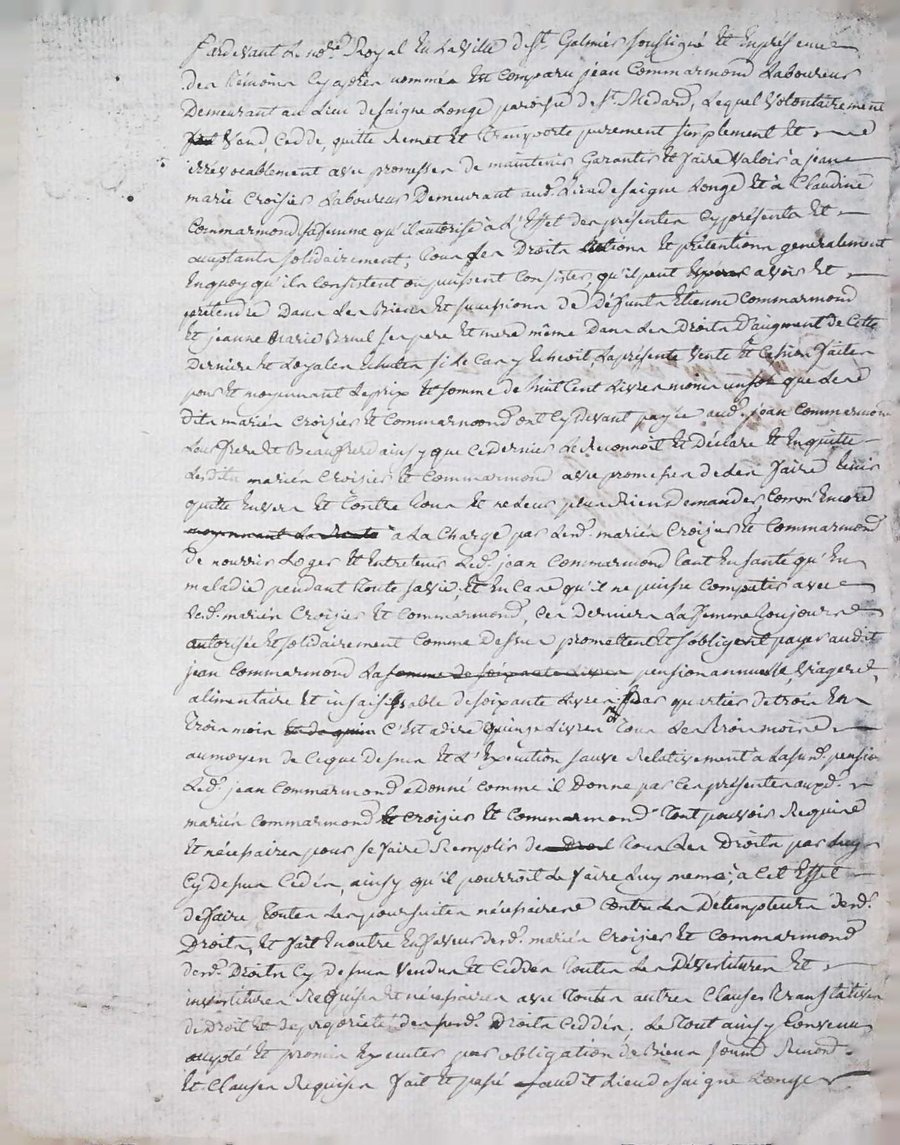 Pardevant Le no.re Royal En La Ville de St. Galmier soussigné Et En presence
des témoins Cy après nommés Est Comparu jean Commarmond Laboureur
Demeurant au Lieu de saigne Longe paroisse de St. Medard, Lequel Volontairement
Vend, Cedde, quitte Remet Et transporte purement simplement Et
irrévocablement avec promesses de maintenir Garantir Et faire Valoir à jean
marie Croisier Laboureur Demeurant aud. Lieu de saigne Longe Et à Claudine
Commarmond sa femme qu'il autorise à L'Effet des présentes Cy présents Et
acceptants solidairement, tous Les Droits actions Et prétentions generalement
En quoy qu'ils Consistent ou puissent Consister qu'il peut avoir Et
prétendre Dans Les Biens Et successions de Défunts Etienne Commarmond
Et jeanne Marie Bruel ses pere Et mere même Dans Les Droits D'augment de Cette
Derniere Et Loyales si le Cas y Echeoit, La présente Vente Et Cession faites
pour Et moyennant Le prix Et somme de huit Cent Livres moins un sol que Les
dits mariés Croizier Et Commarmond ont Cy devant payée aud. jean Commarmond
Leur frere Et Beaufrere ainsy que Ce dernier Le Reconnoit Et Déclare Et En quitte
Lesdits mariés Croizier Et Commarmond avec promesses de Les faire tenir
quitte Envers Et Contre tous Et ne Leur plus Rien Demander, Comm'Encore
moyennant La à La Charge par Lesd. mariés Croizier Et Commarmond
de nourrir Loger Et Entretenir Led. jean Commarmond tant En santé qu'En
maladie pendant toute sa vie, Et En Cas qu'il ne puisse Compatir avec
Lesd. mariés Croizier Et Commarmond, Ces Derniers La femme toujours
autorisée Et solidairement Comme Dessus promettent Et s'obligent payer audit
jean Commarmond La somme de soixante Livres pension annuelle, Viagere,
alimentaire Et insaisissable de soixante Livres par quartier de trois En
trois mois C'est a dire quinze Livres tous Les trois mois
au moyen de Ce que Dessus Et L'Execution sauve Relativement à La susd. pension
Led. jean Commarmond a donné Comme il Donne par Ces présentes auxd.
mariés Commarmond Croizier Et Commarmond tout pouvoir Requis
Et nécessaire pour se faire Remplir de tous Les Droits par Luy
Cy Dessus Cedés, ainsy qu'il pourroit Le faire Luy meme, à Cet Effet
de faire toutes Les poursuites nécessaires Contre Les Détempteurs desd.
Droits, Et fait En outre En faveur desd. mariés Croizier Et Commarmond
desd. Droits Cy Dessus Vendus Et Ceddés toutes Les Dévestitures Et
investitures Requises Et nécessaires avec toutes autres Clauses translatives
de Droit Et de proprieté des susd. Droits Ceddés. Le tout ainsy Convenu
accepté Et promis Executer par obligation de Biens soum. Renond.
Et Clauses Requises fait Et passé audit Lieu de saigne Longe